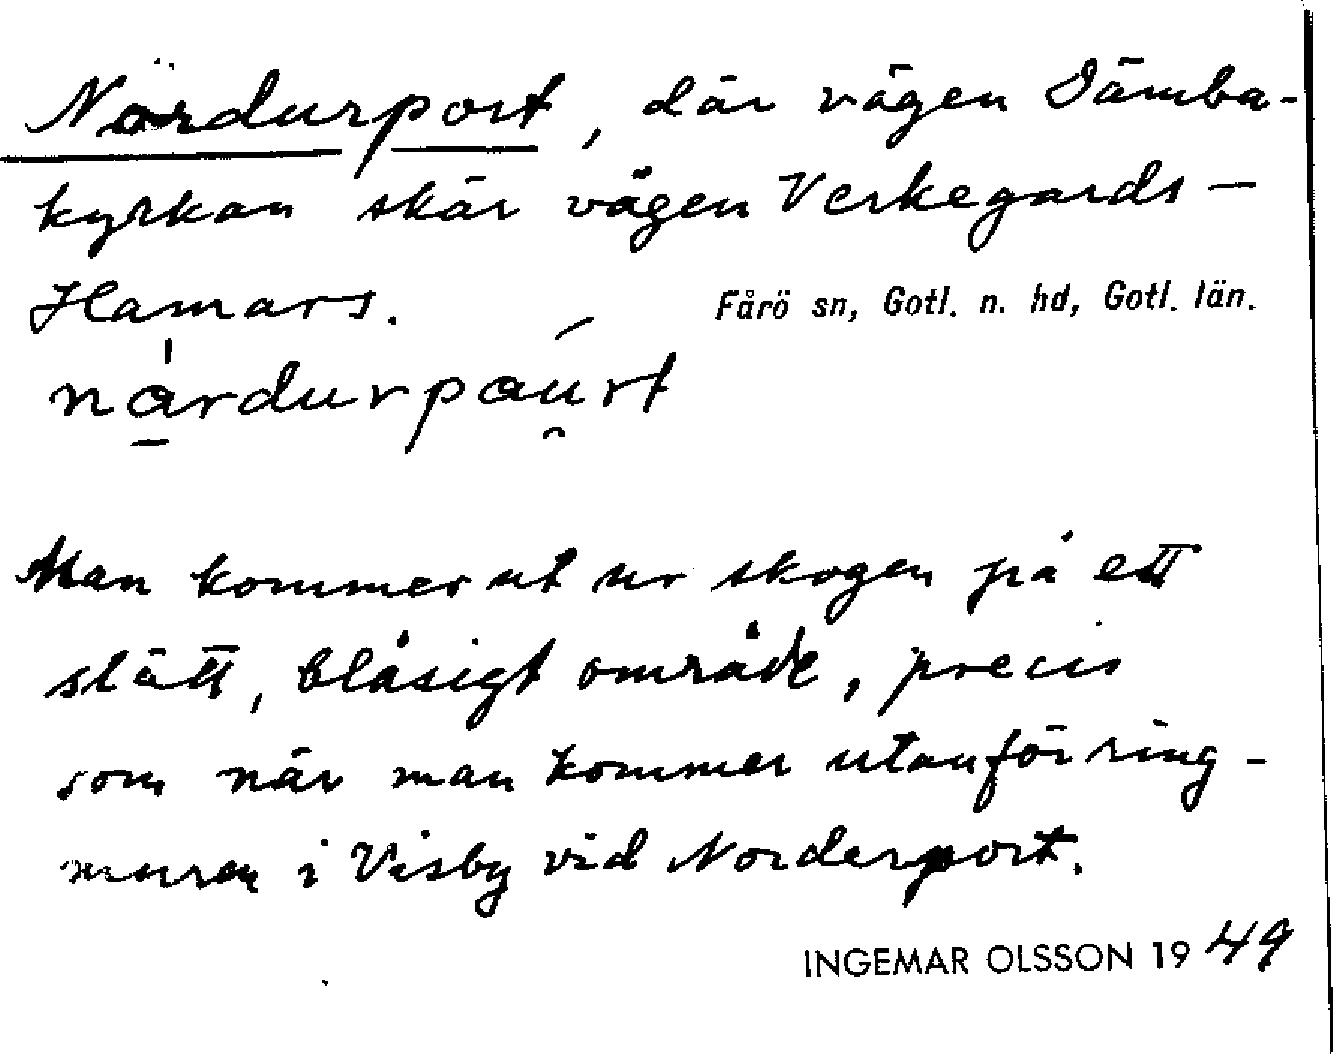 Nördurport, där vägen Dämba-
kyrkan skär vägen Verkegards –
Hamars.
Fårö sn, Gotl. n. hd, Gotl. län.
nårdurpaurt
Man kommer ut ur skogen på ett
slätt, blåsigt område, precis
som när man kommer utanför ring-
muren i Visby vid Norderport.
INGEMAR OLSSON 1949